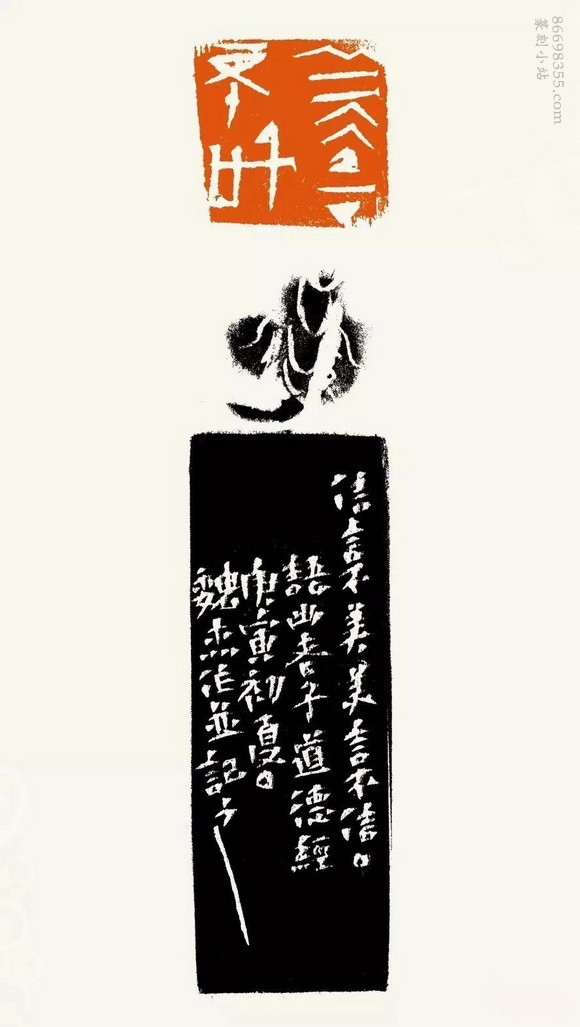 86698355.com
篆刻小站
信言不美美言不信
語出老子道德經
庚寅初夏
魏杰作並記